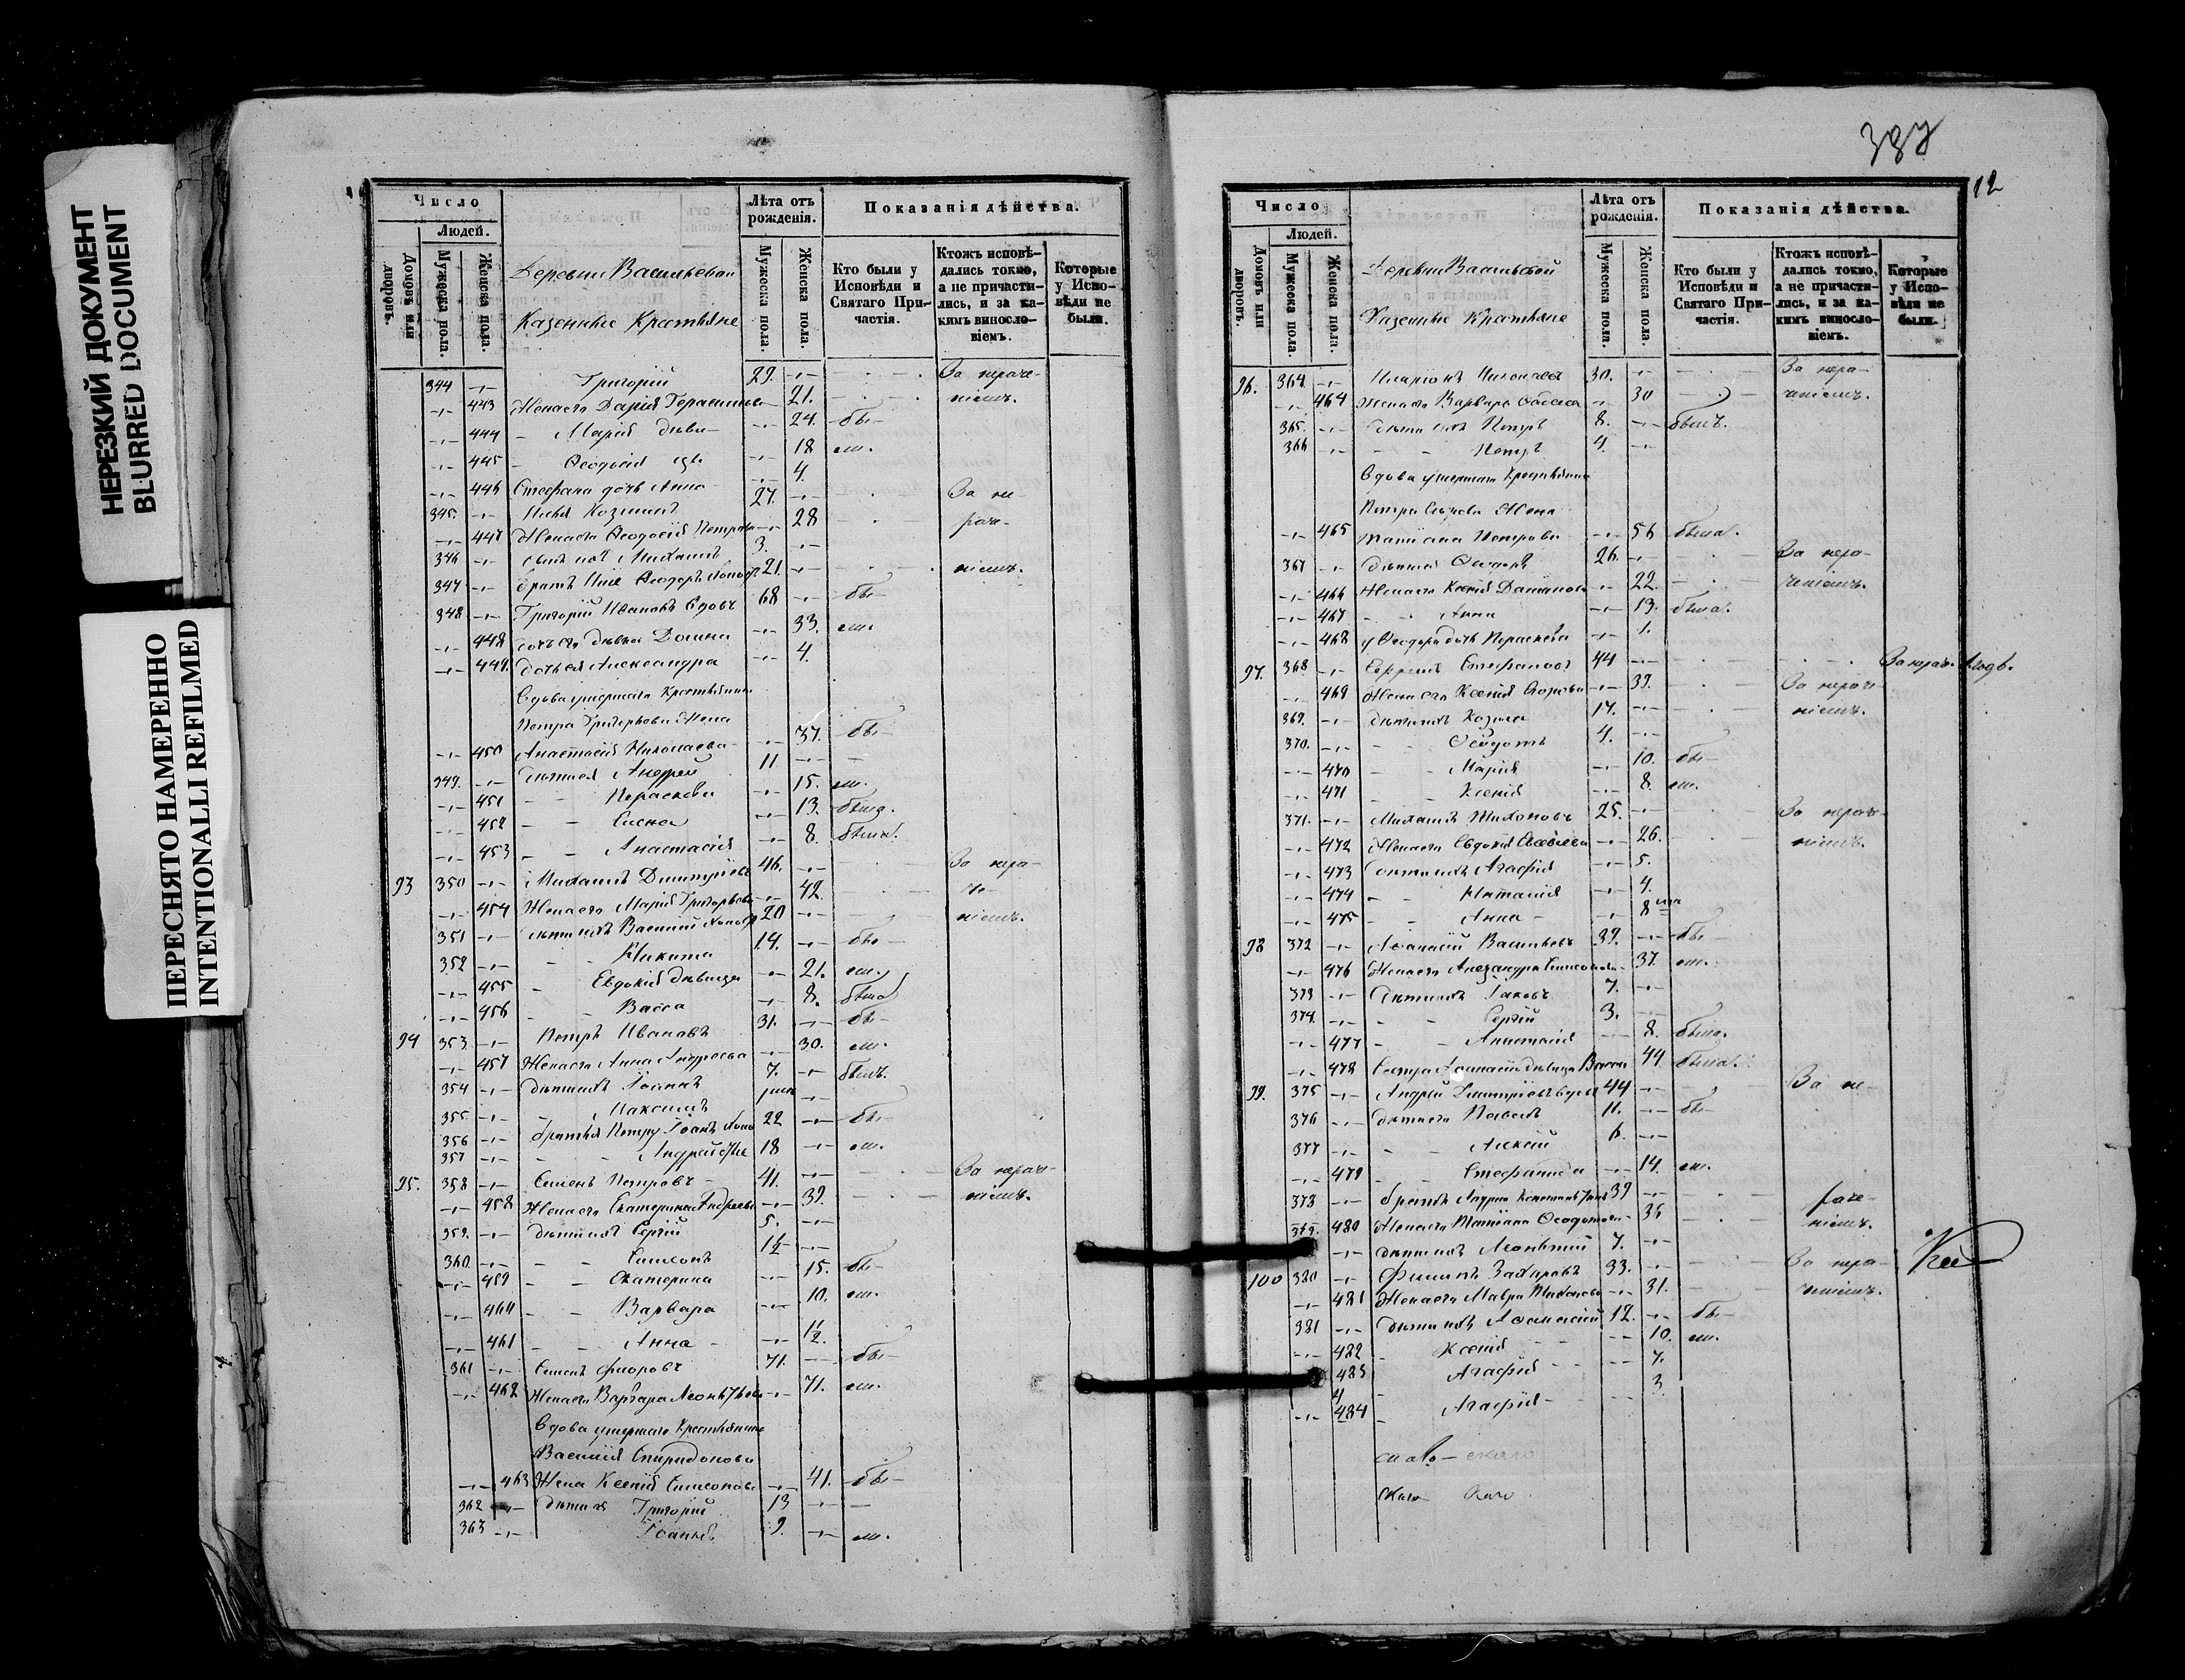 НЕРЕЗКИЙ ДОКУМЕНТ
BLURRED DOCUMENT
ПЕРЕСНЯТО НАМЕРЕННО
INTENTIONALLI REFILMED
Число
Людей.
Домовъ или дворовъ.
Мужеска пола.
Женска пола.
Деревни
Казенные Крестьяне
Лѣта отъ рожденія.
Мужеска пола.
Женска пола.
Показанія дѣйства.
Кто были у Исповѣди и Святаго Причастія.
Ктожъ исповѣдались токмо, а не причастились, и за какимъ винословіемъ.
Которые у Исповѣди не были.
344 Григорій 29. За нераче-
443 Жена его Дарія 21. ніемъ.
444 Марія 24. бы-
445 Ѳеодосія 18 ли.
446 Стефана дочь Анна 4.
345. Илья 27. За не-
447 Жена его Ѳеодосія Петрова 28 раче-
346 сынъ ихъ Михаилъ 3.
347 братъ Ѳеодоръ 21. ніемъ.
348 Григорій Ивановъ 68 бы-
448 дочь его дѣвка 33. ли.
449. дочь ея Александра 4.
Вдова умершаго Крестьянина
Петра Григорьева Жена
450 Анастасія Николаева 37. бы-
349. дѣти ея Андрей 11
451 Параскева 15. ли.
452 Елена 13. была.
453 Анастасія 8. была.
93 350 Михаилъ Димитріевъ 46. За нера-
454 Жена его Марія Григорьева 42. че-
351 дѣти ихъ Василій 20 ніемъ.
352 Никита 14. бы-
455 Евдокія дѣвица 21. ли.
456 Васса 8. была
94 353 Петръ Ивановъ 31. бы-
457 Жена его Анна Андреева 30. ли.
354 дѣти ихъ Іоаннъ 7. былъ.
355 Максимъ
356 братья Петру Іоаннъ 22 бы-
357 Андрей 18 ли.
95. 358 Семенъ Петровъ 41. За нераче-
458 Жена его Екатерина Андреева 39. ніемъ.
359. дѣти ихъ Сергій 5.
360 Симеонъ 1½
459 Екатерина 15. бы-
460 Варвара 10. ли.
461 Анна 1½.
361 Семенъ 71. бы-
462 Жена его Варвара Леонтьева 71. ли.
Вдова умершаго Крестьянина
Василія Спиридонова
463 Жена Ксенія Симеонова 41. бы-
362 дѣти ея Григорій 13
363 Іоаннъ 9. ли.
387
12
Число
Людей.
Домовъ или дворовъ.
Мужеска пола.
Женска пола.
Деревни
Казенные Крестьяне
Лѣта отъ рожденія.
Мужеска пола.
Женска пола.
Показанія дѣйства.
Кто были у Исповѣди и Святаго Причастія.
Ктожъ исповѣдались токмо, а не причастились, и за какимъ винословіемъ.
Которые у Исповѣди не были.
96. 364 Иларіонъ 30. За нера-
464 Жена его Варвара 30 ченіемъ.
365. дѣти ихъ Петръ 8. былъ.
366 Петръ 4.
Вдова умершаго Крестьянина
Петра Жена
465 Татіана Петрова 56 была.
367 дѣти ея Ѳеодоръ 26. За нера-
466 Жена его Ксенія 22. ченіемъ.
467 Анна 13. была.
468 у Ѳеодора дочь Параскева 1.
97. 368 Стефановъ 44
469 Жена его Ксенія 39. За нераче-
369. дѣти ихъ Козма 17. ніемъ.
370. Ѳеодотъ 4.
470 Марія 10. бы-
471 Ксенія 8. ли.
371. Михаилъ 25. За нераче-
472 Жена его Евдокія 26. ніемъ.
473 дѣти ихъ Агафія 5.
474 Наталія 4.
475 Анна 8
98 372 Аѳанасій Васильевъ 39. бы-
476 Жена его Александра Симеонова 37. ли.
373 дѣти ихъ Іаковъ 7.
374. Сергій 3.
477 Анастасія 8. была.
478 Сестра Аѳанасія дѣвица 44 была.
99. 375 Андрей Димитріевъ 44 За не-
376 дѣти его Павелъ 11. бы-
377 Алексій 6.
479 Стефанида 14. ли.
378 братъ Андрея 39 раче-
480 Жена его Татіана Ѳеодотова 36 ніемъ.
379. дѣти ихъ Леонтій 7.
100 380 Филиппъ Захаровъ 33. За нера-
481 Жена его Мавра 31. ченіемъ.
381 дѣти ихъ Аѳанасій 12. бы-
482 Ксенія 10. ли.
483 Агафія 7.
484 Агафія 3.